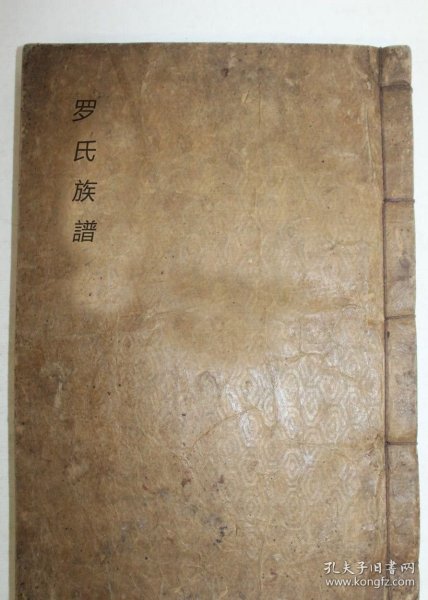 罗氏族譜
孔夫子旧书网
www.kongfz.com